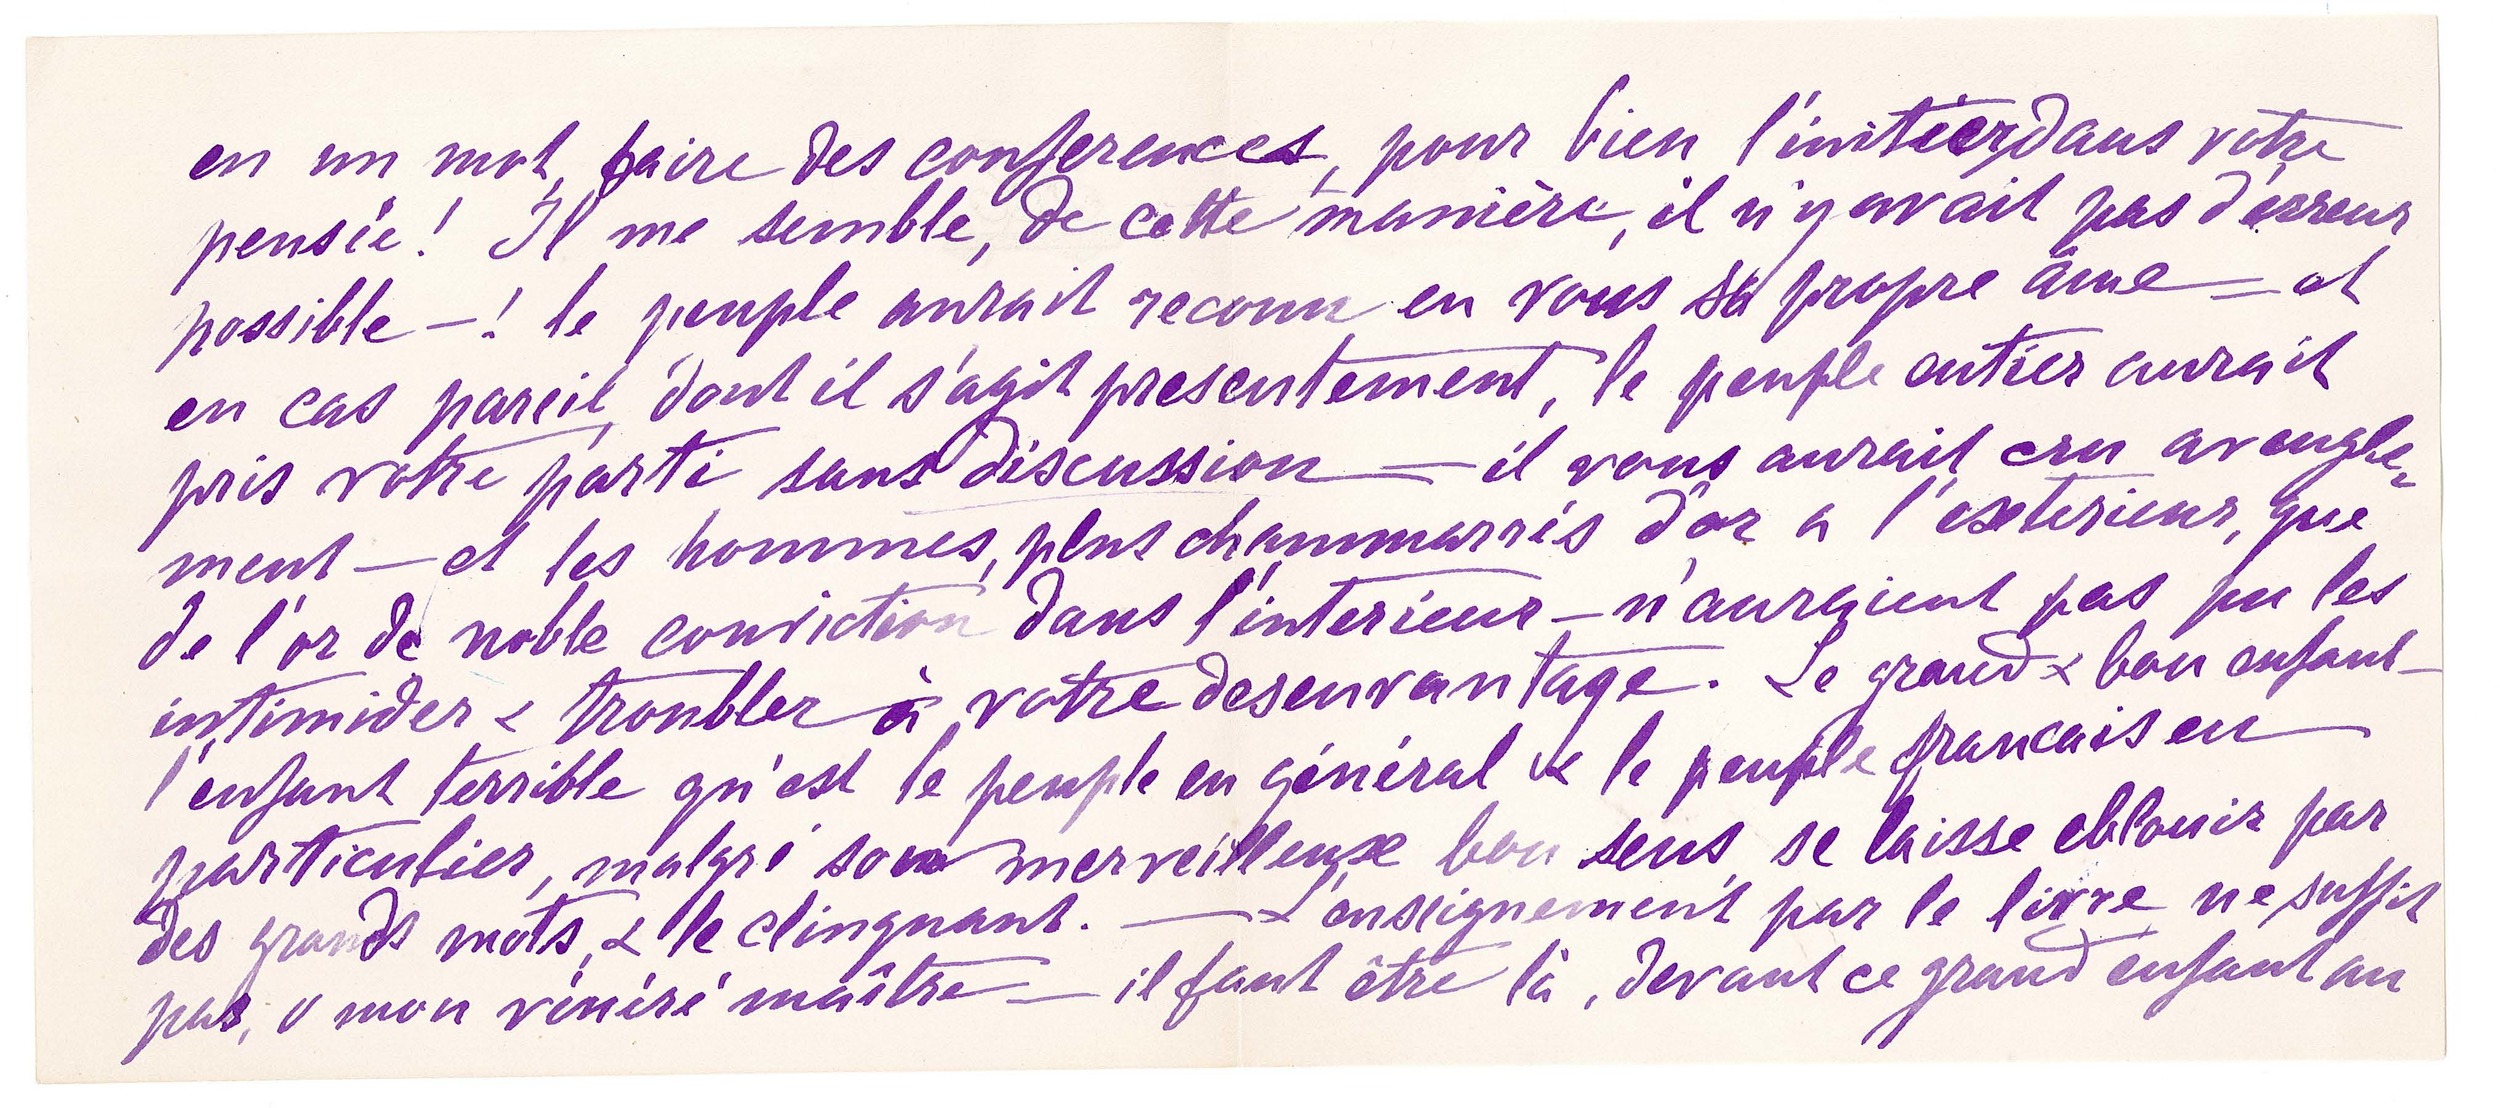 en un mot, faire des conferences, pour bien l'initier dans votre
pensée! Il me semble, de cette manière, il n'y avait pas d'erreur
possible —! le peuple aurait reconnu en vous sa propre âme — et
en cas pareil, dont il s'agit presentement, le peuple entier aurait
pris votre parti sans discussion — il vous aurait cru avengle-
ment — et les hommes, plus chammarrés d'or a l'exterieur, que
de l'or de noble conviction dans l'interieur — n'auraient pas pu les
intimider & troubler à votre desenvantage. Le grand & bon enfant —
l'enfant terrible qu'est le peuple en général & le peuple francais en
particulier, malgré son merveilleux bon sens, se laisse eblouir par
des grands mots, & le clinquant. — L'enseignement par le livre ne suffit
pas, o mon vénéré maître — il faut être là, devant ce grand enfant au